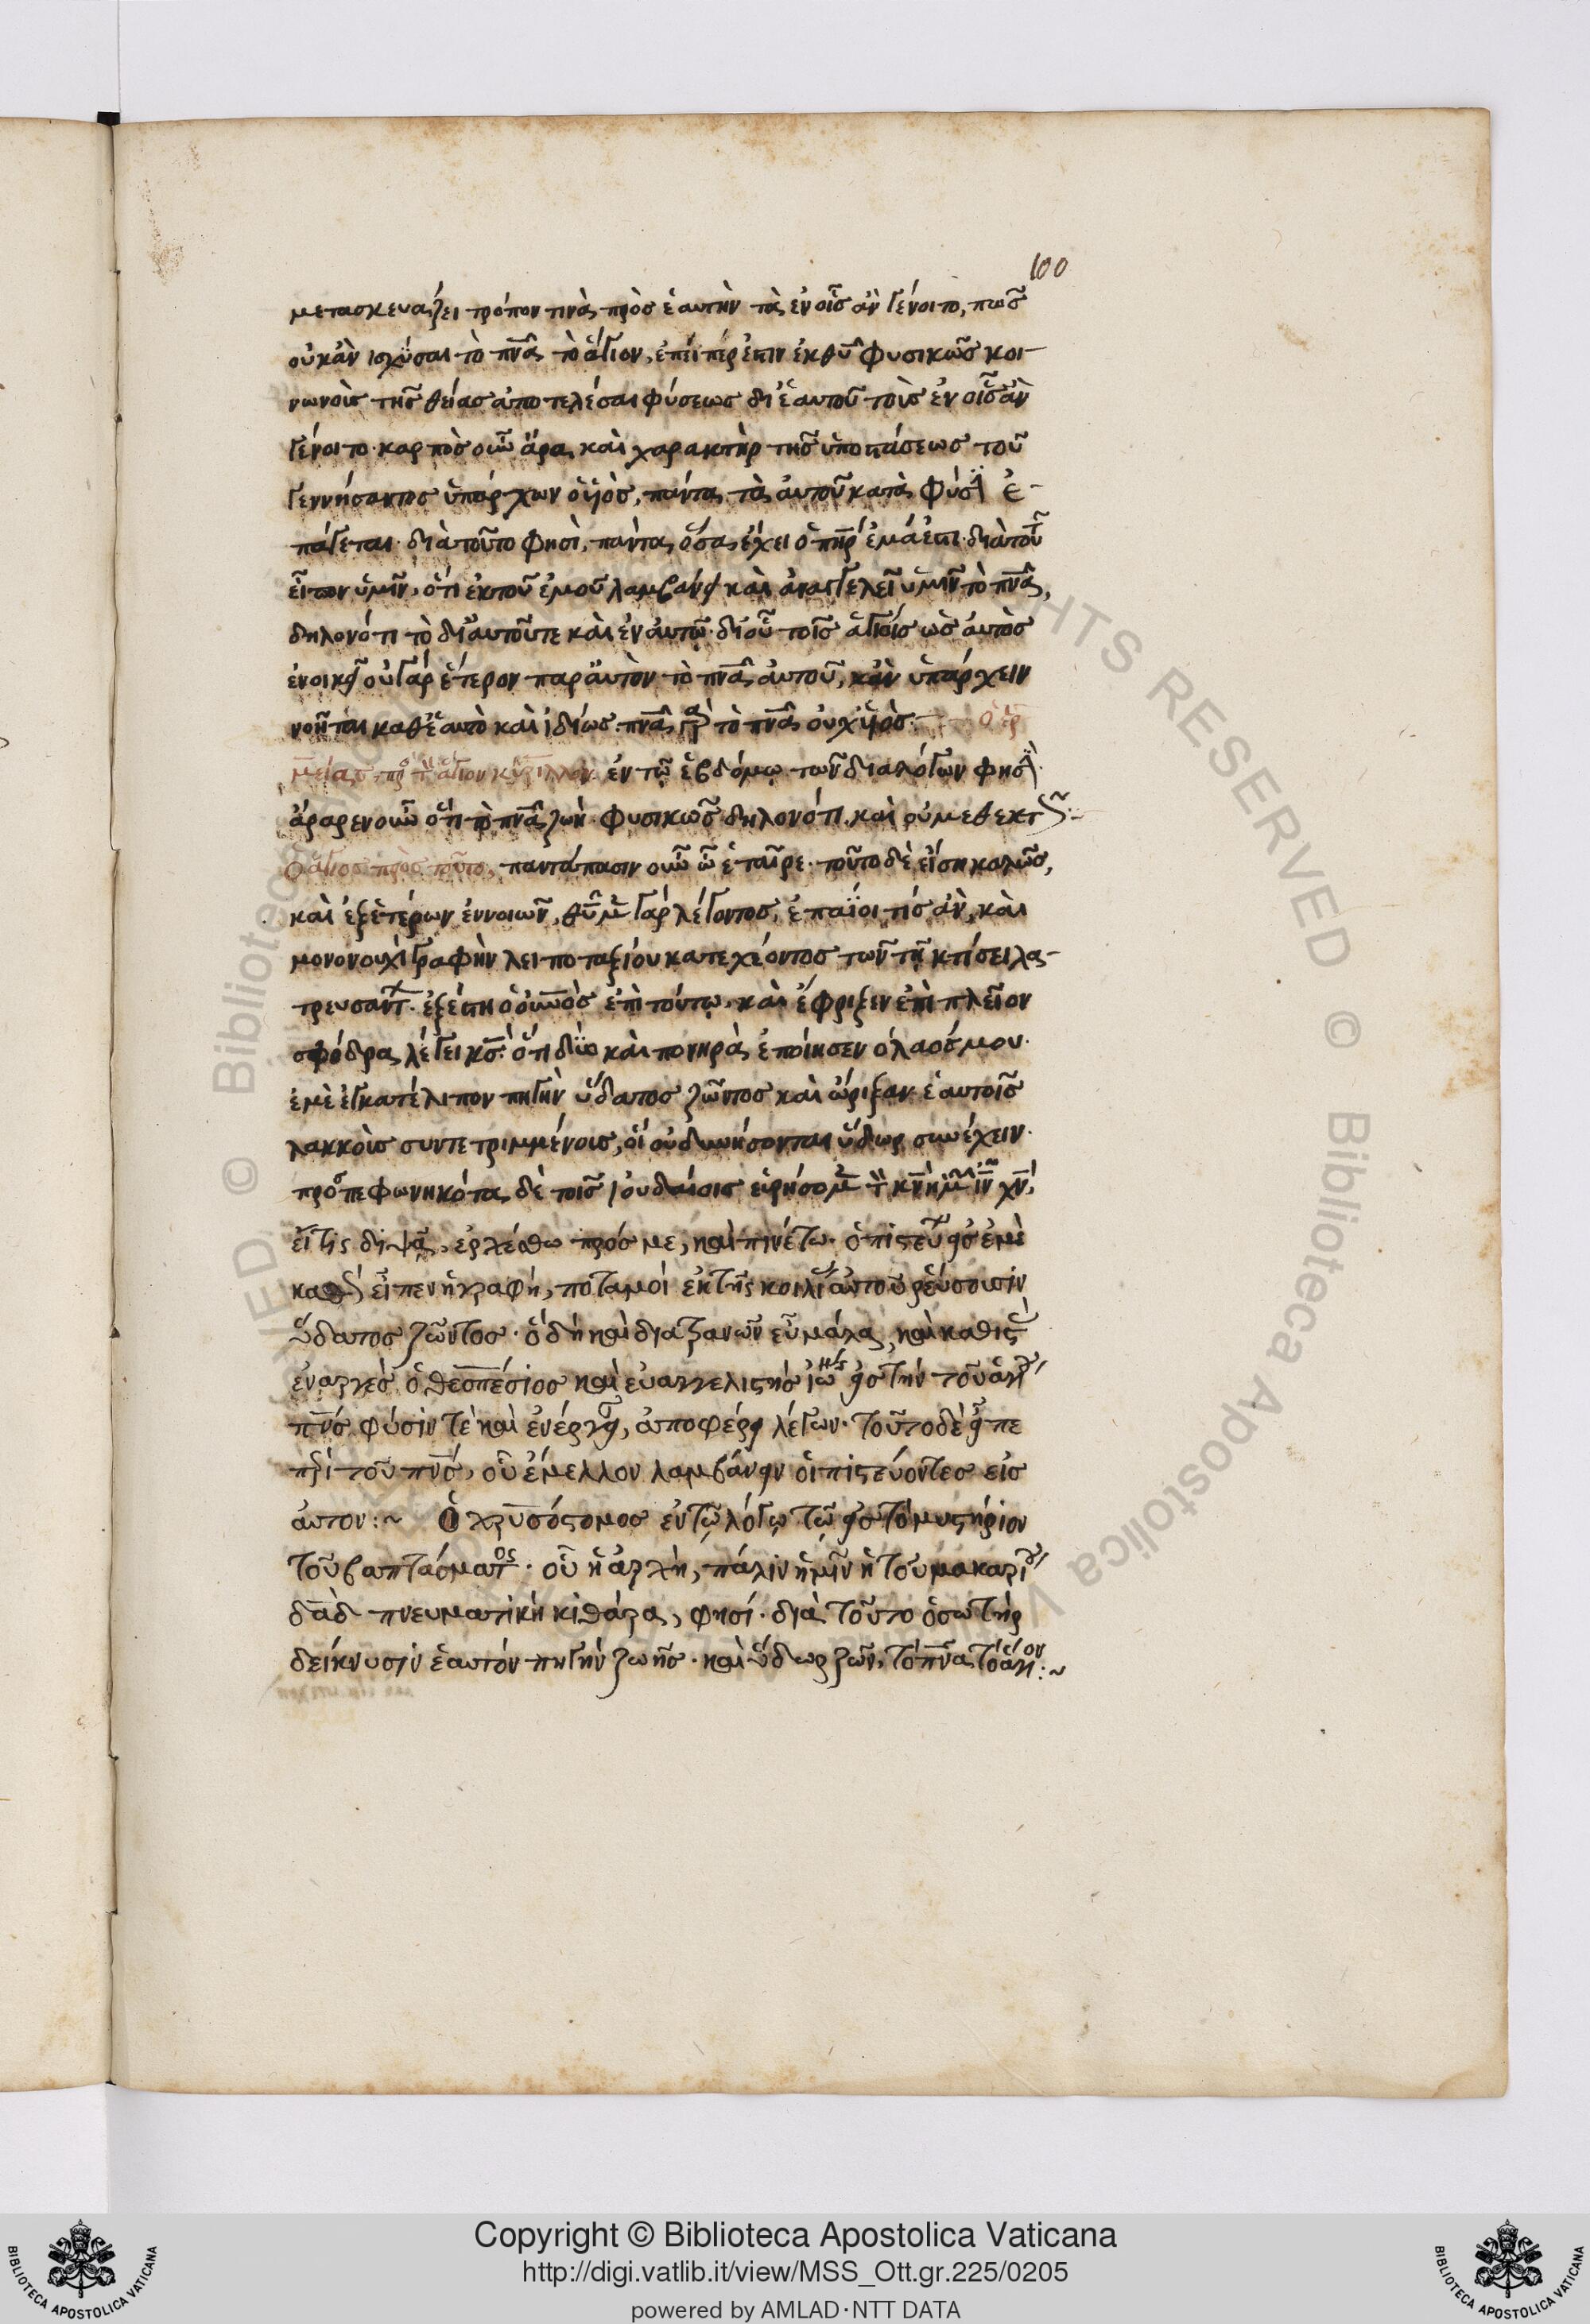 100
μετασκευάζει τρόπον τινὰ πρὸς ἑαυτὴν τὰ ἐν οἷς ἂν γένοιτο, πῶς
οὐκ ἂν ισχύσαι τὸ πνᾶ τὸ ἅγιον, ἐπείπέρ ἐστιν ἐκ θυ φυσικῶς κοι-
νωνοὶς τῆς θείας ἀποτελέσαι φύσεως δι' ἑαυτοῦ τοὶς ἐν οἷς ἂν
γένοιτο· καρπὸς οὖν ἄρα καὶ χαρακτὴρ τῆς ὑποστάσεως τοῦ
γεννήσαντος ὑπάρχων ὁ ϋἱὸς, πάντα τὰ ἀυτοῦ κατὰ φύσιν ἐ-
πάγεται· διὰ τοῦτο φησὶ, πάντα ὅσα ἔχει ὁ πηρ ἐμά ἐστι· διὰ τοῦτ
εἶπον ὑμῖν, ὅτι ἐκ τοῦ ἐμοῦ λαμβάνει καὶ ἀναγγελεῖ ὑμῖν τὸ πνᾶ,
δηλονότι τὸ δι' ἀυτοῦ τε καὶ ἐν ἀυτῶ· δι' οὗ τοῖς ἁγίοις ὡς ἀυτὸς
ἐνοικεῖ οὐ γάρ ἕτερον παρ' ἀυτὸν τὸ πνᾶ ἀυτοῦ, κἂν ὑπάρχειν
νοῆται καθ' ἑαυτὸ καὶ ἰδίως· πνᾶ γὰρ τὸ πνᾶ οὐχ ϋἱὸς· ὁ ἑρ
μείας πρὸ τὸν ἅγιον κύριλλον· ἐν τῶ ἑβδόμω τῶν διαλόγων φησὶν·
ἄραρεν οὖν ὅτι τὸ πνᾶ ζωὴ· φυσικῶς δηλονότι καὶ οὐ μεθεκτῶς·
ὁ ἅγιος πρὸς τοῦτο, παντάπασιν οὖν ὦ ἑταῖρε· τοῦτο δὲ εἴση καλῶς,
καὶ ἐξ ἑτέρων ἐννοιῶν, θυ μὲν γάρ λέγοντος, ἐπαΐοι τίς ἂν, καὶ
μονονουχὶ γραφὴν λειποταξίου κατεχέοντος τῶν τῆ κτίσει λα-
τρευσάντ· ἐξέστη ὁ ουνος ἐπὶ τούτω· καὶ ἔφριξεν ἐπὶ πλεῖον
σφόδρα λέγει κς· ὅτι δύο καὶ πονηρὰ ἐποίησεν ὁ λαός μου·
ἐμὲ ἐγκατέλιπον πηγὴν ὕδατος ζῶντος καὶ ὤρυξαν ἑαυτοῖς
λακκοὶς συντετριμμένοις, οἱ οὐ δυνήσονται ὕδωρ συνέχειν·
προςπεφωνηκότα δὲ τοῖς ἰουδαίοις εὑρήσομεν τὸν κν ἡμῶν ιν χν,
εἴ τις διψᾶ, ἐρχέσθω πρός με, καὶ πινέτω· ὁ πιστεύων εἰς ἐμὲ
καθὼς εἶπεν ἡ γραφή, ποταμοί ἐκ τῆς κοιλίας ἀυτοῦ ῥεύσουσιν
ὕδατος ζῶντος· ὁ δή καὶ διατρανῶν εὖ μάλα, καὶ καθιστὰς
ἐναργὲς ὁ θεσπέσιος καὶ εὐαγγελιστὴς ἰωης εἰς τὴν τοῦ ἁγίου
πνς φύσιν τὲ καὶ ἐνέργειαν, ἀποφέρει λέγων· τοῦτο δὲ εἶπε
περὶ τοῦ πνς, οὗ ἔμελλον λαμβάνειν οἱ πιστεύοντες εἰς
ἀυτον:~ Ὁ χρυσόστομος ἐν τῶ λόγω τῶ εἰς τό μυστήριον
τοῦ βαπτίσματος· οὗ ἡ ἀρχὴ, πάλιν ἡμῖν ἡ τοῦ μακαρίου
δαδ πνευματικὴ κιθάρα, φησί· διὰ τοῦτο ὁ σωτὴρ
δείκνυσιν ἑαυτόν πηγὴν ζωῆς· καὶ ὕδωρ ζῶν, τὸ πνᾶ τὸ ἅγιον:~
Copyright © Biblioteca Apostolica Vaticana
http://digi.vatlib.it/view/MSS_Ott.gr.225/0205
powered by AMLAD·NTT DATA